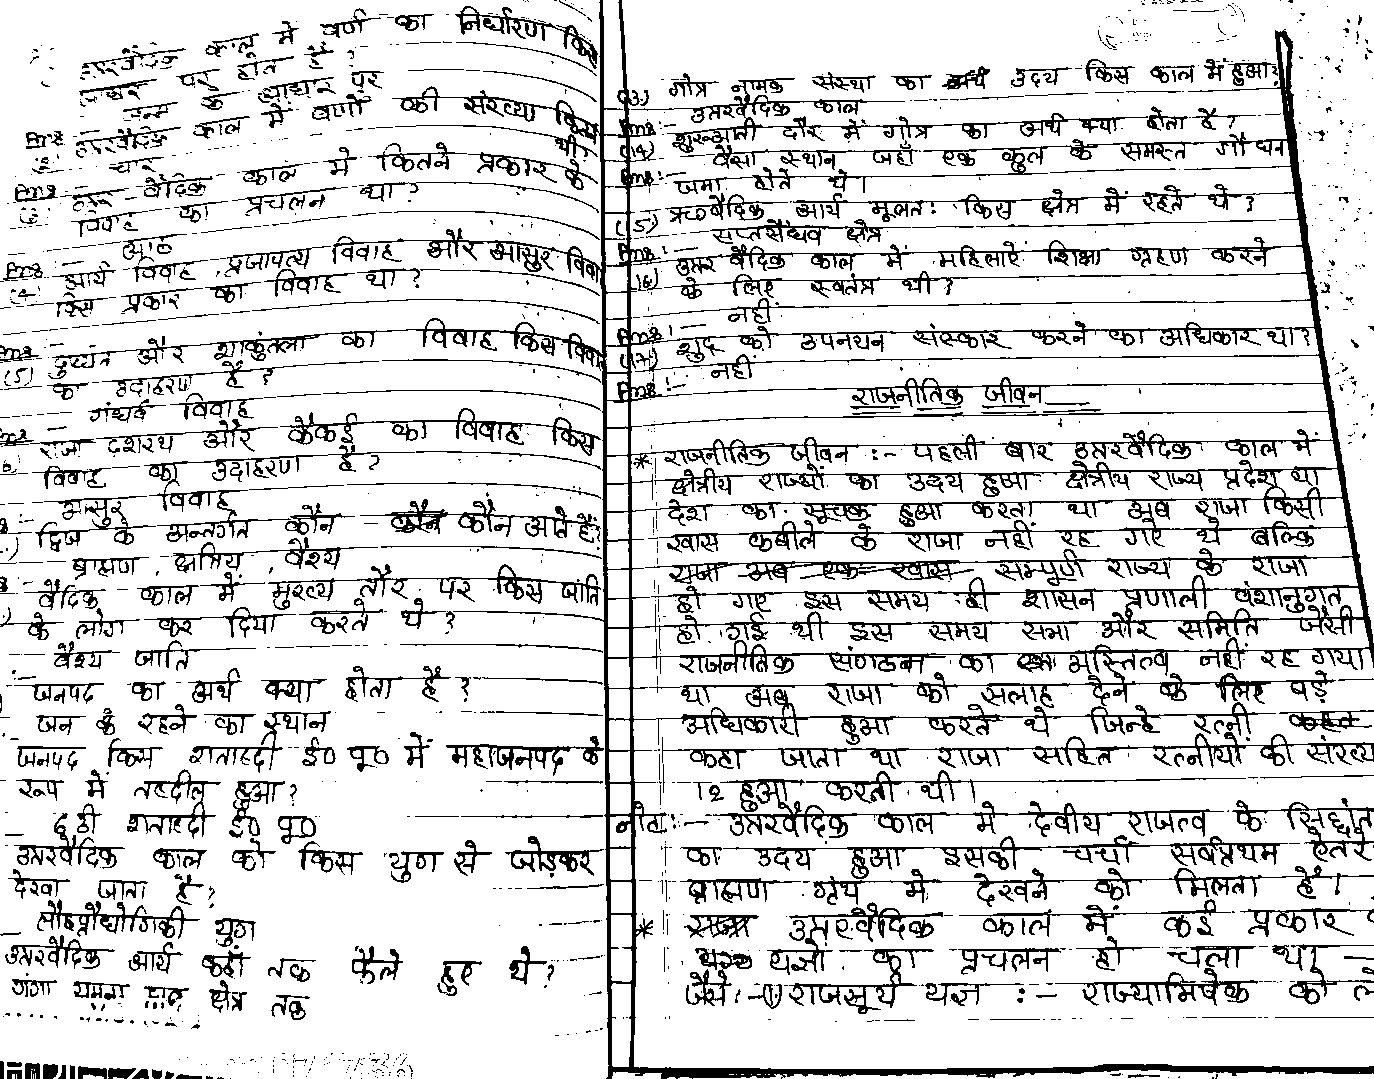 उत्तरवैदिक काल में वर्ण का निर्धारण किस
आधार पर होते हैं?
जन्म के आधार पर
उत्तरवैदिक काल में वर्णों की संख्या कितनी
थी?
चार
उत्तर वैदिक काल में कितने प्रकार के
विवाह का प्रचलन था?
आठ
आर्य विवाह, प्रजापत्य विवाह और आसुर विवाह
किस प्रकार का विवाह था?
(5) दुष्यंत और शाकुंतला का विवाह किस विवाह
का उदाहरण है?
– गंधर्व विवाह
राजा दशरथ और कैकई का विवाह किस
विवाह का उदाहरण है?
– आसुर विवाह
द्विज के अन्तर्गत कौन – कौन आते हैं?
ब्राह्मण, क्षत्रिय, वैश्य
वैदिक काल में मुख्य तौर पर किस जाति
के लोग कर दिया करते थे?
– वैश्य जाति
जनपद का अर्थ क्या होता है?
जन के रहने का स्थान
जनपद किस शताब्दी ई० पू० में महाजनपद के
रूप में तब्दील हुआ?
– छठी शताब्दी ई० पू०
उत्तरवैदिक काल को किस युग से जोड़कर
देखा जाता है?
– लौहप्रौद्योगिकी युग
उत्तरवैदिक आर्य कहाँ तक फैले हुए थे?
गंगा यमुना दोआब क्षेत्र तक
(13) गोत्र नामक संस्था का उदय किस काल में हुआ?
Ans:- उत्तरवैदिक काल
(14) शुरुआती दौर में गोत्र का अर्थ क्या होता है?
Ans:- वैसा स्थान जहाँ एक कुल के समस्त गौ धन
जमा होते थे।
(15) ऋग्वैदिक आर्य मूलतः किस क्षेत्र में रहते थे?
Ans:- सप्तसैंधव क्षेत्र
(16) उत्तर वैदिक काल में महिलाएँ शिक्षा ग्रहण करने
के लिए स्वतंत्र थी?
Ans:- नहीं
(17) शुद्र को उपनयन संस्कार करने का अधिकार था?
Ans:- नहीं
राजनीतिक जीवन
* राजनीतिक जीवन :- पहली बार उत्तरवैदिक काल में
क्षेत्रीय राज्यों का उदय हुआ क्षेत्रीय राज्य प्रदेश या
देश का सूचक हुआ करता था अब राजा किसी
खास कबीले के राजा नहीं रह गए थे बल्कि
राजा अब एक खास सम्पूर्ण राज्य के राजा
हो गए इस समय ही शासन प्रणाली वंशानुगत
हो गई थी इस समय सभा और समिति जैसी
राजनीतिक संगठन का अस्तित्व नहीं रह गया
था अब राजा को सलाह देने के लिए बड़े
अधिकारी हुआ करते थे जिन्हे रत्नी
कहा जाता था राजा सहित रत्नीयों की संख्या
12 हुआ करती थी।
नोट :- उत्तरवैदिक काल मे देवीय राजत्व के सिद्धांत
का उदय हुआ इसकी चर्चा सर्वप्रथम ऐतरे
ब्राह्मण ग्रंथ मे देखने को मिलता है।
* उत्तरवैदिक काल में कई प्रकार
यज्ञो का प्रचलन हो चला था –
जैसे :- (1) राजसूर्य यज्ञ :- राज्याभिषेक को